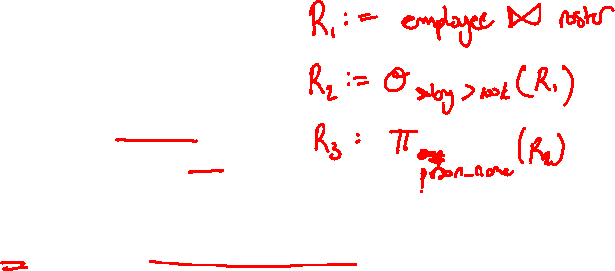 R₁ := employee ⋈ roster
R₂ := σ salary > 100k (R₁)
R₃ : π person_name (R₂)